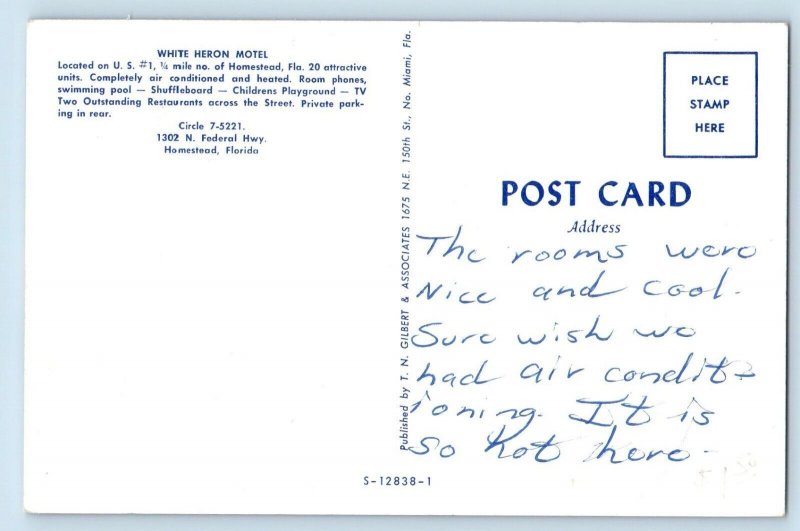 WHITE HERON MOTEL
Located on U. S. #1, ¼ mile no. of Homestead, Fla. 20 attractive
units. Completely air conditioned and heated. Room phones,
swimming pool — Shuffleboard — Childrens Playground — TV
Two Outstanding Restaurants across the Street. Private park-
ing in rear.
Circle 7-5221.
1302 N. Federal Hwy.
Homestead, Florida
Published by T. N. GILBERT & ASSOCIATES 1675 N.E. 150th St., No. Miami, Fla.
PLACE
STAMP
HERE
POST CARD
Address
The rooms were
Nice and cool.
Sure wish we
had air condit-
ioning. It is
so hot here.
S-12838-1